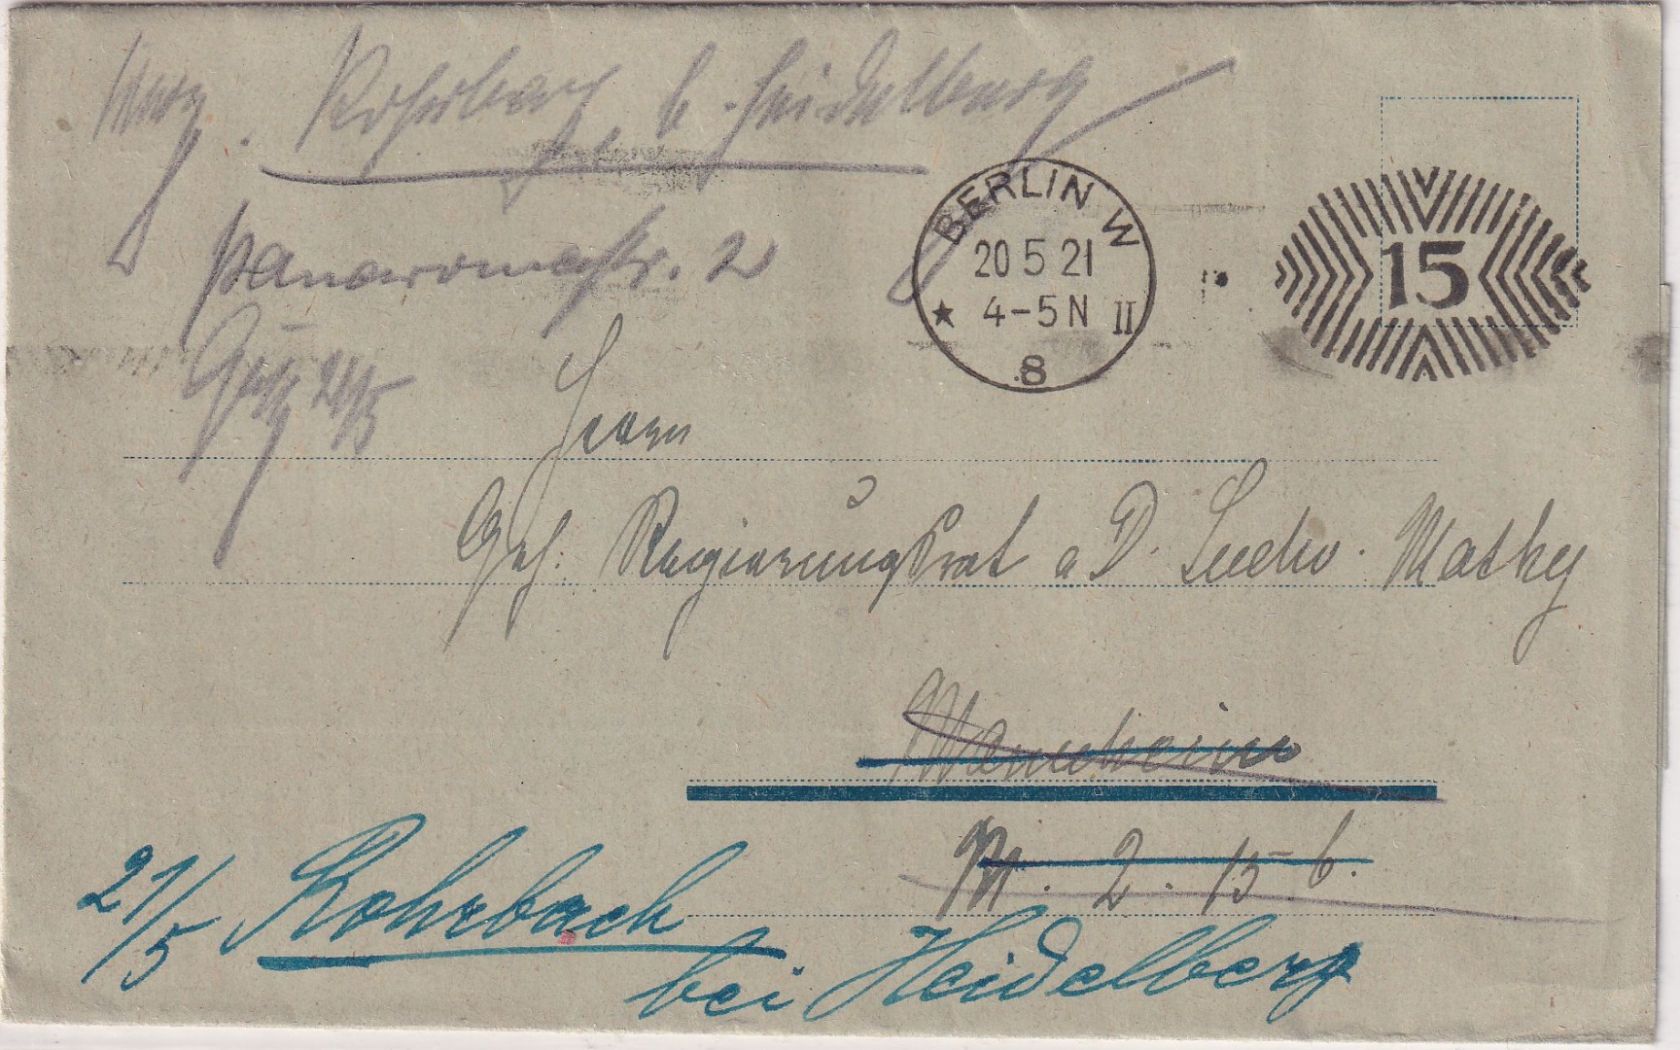 Verz. Rohrbach b. Heidelberg
Panoramastr. 2
21/5
BERLIN W
20 5 21
4-5 N II
8
15
Herrn
Geh. Regierungsrat a D. Ludw. Mathy
Mannheim
M. 2. 15 b.
21/5 Rohrbach
bei Heidelberg